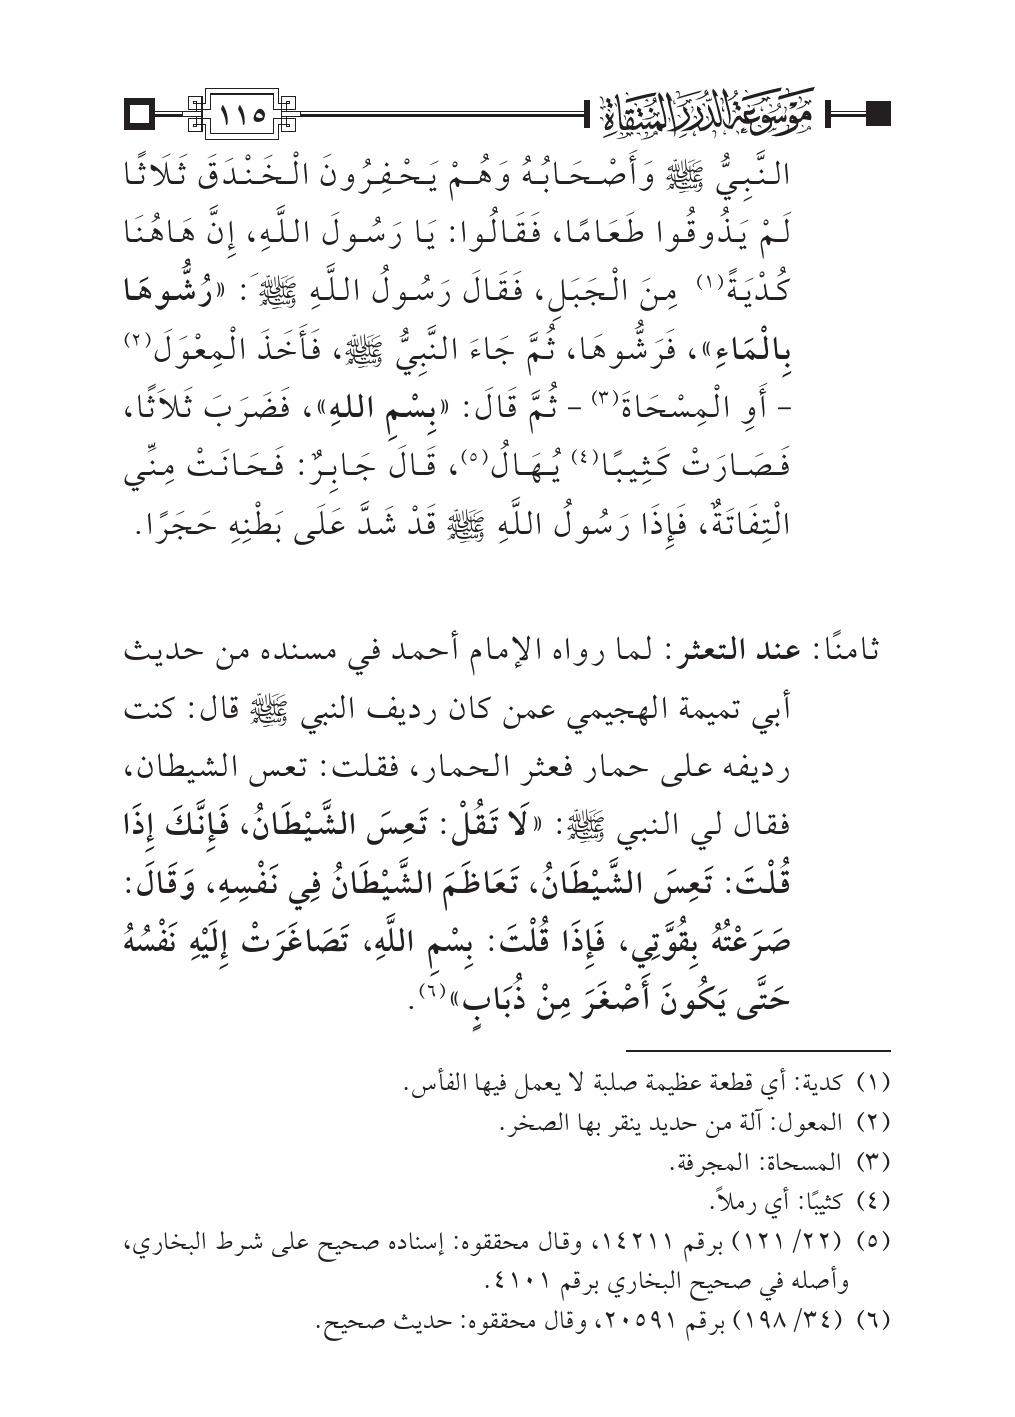 موسوعة الدرر المنتقاة
١١٥
النَّبِيُّ ﷺ وَأَصْحَابُهُ وَهُمْ يَحْفِرُونَ الْخَنْدَقَ ثَلَاثًا
لَمْ يَذُوقُوا طَعَامًا، فَقَالُوا: يَا رَسُولَ اللَّهِ، إِنَّ هَاهُنَا
كُدْيَةً(١) مِنَ الْجَبَلِ، فَقَالَ رَسُولُ اللَّهِ ﷺ َ: «رُشُّوهَا
بِالْمَاءِ»، فَرَشُّوهَا، ثُمَّ جَاءَ النَّبِيُّ ﷺ، فَأَخَذَ الْمِعْوَلَ(٢)
– أَوِ الْمِسْحَاةَ(٣) – ثُمَّ قَالَ: «بِسْمِ اللهِ»، فَضَرَبَ ثَلاَثًا،
فَصَارَتْ كَثِيبًا(٤) يُهَالُ(٥)، قَالَ جَابِرٌ: فَحَانَتْ مِنِّي
الْتِفَاتَةٌ، فَإِذَا رَسُولُ اللَّهِ ﷺ قَدْ شَدَّ عَلَى بَطْنِهِ حَجَرًا.
ثامنًا: عند التعثر: لما رواه الإمام أحمد في مسنده من حديث
أبي تميمة الهجيمي عمن كان رديف النبي ﷺ قال: كنت
رديفه على حمار فعثر الحمار، فقلت: تعس الشيطان،
فقال لي النبي ﷺ: «لَا تَقُلْ: تَعِسَ الشَّيْطَانُ، فَإِنَّكَ إِذَا
قُلْتَ: تَعِسَ الشَّيْطَانُ، تَعَاظَمَ الشَّيْطَانُ فِي نَفْسِهِ، وَقَالَ:
صَرَعْتُهُ بِقُوَّتِي، فَإِذَا قُلْتَ: بِسْمِ اللَّهِ، تَصَاغَرَتْ إِلَيْهِ نَفْسُهُ
حَتَّى يَكُونَ أَصْغَرَ مِنْ ذُبَابٍ»(٦).
(١) كدية: أي قطعة عظيمة صلبة لا يعمل فيها الفأس.
(٢) المعول: آلة من حديد ينقر بها الصخر.
(٣) المسحاة: المجرفة.
(٤) كثيبًا: أي رملاً.
(٥) (٢٢/ ١٢١) برقم ١٤٢١١، وقال محققوه: إسناده صحيح على شرط البخاري،
وأصله في صحيح البخاري برقم ٤١٠١.
(٦) (٣٤/ ١٩٨) برقم ٢٠٥٩١، وقال محققوه: حديث صحيح.